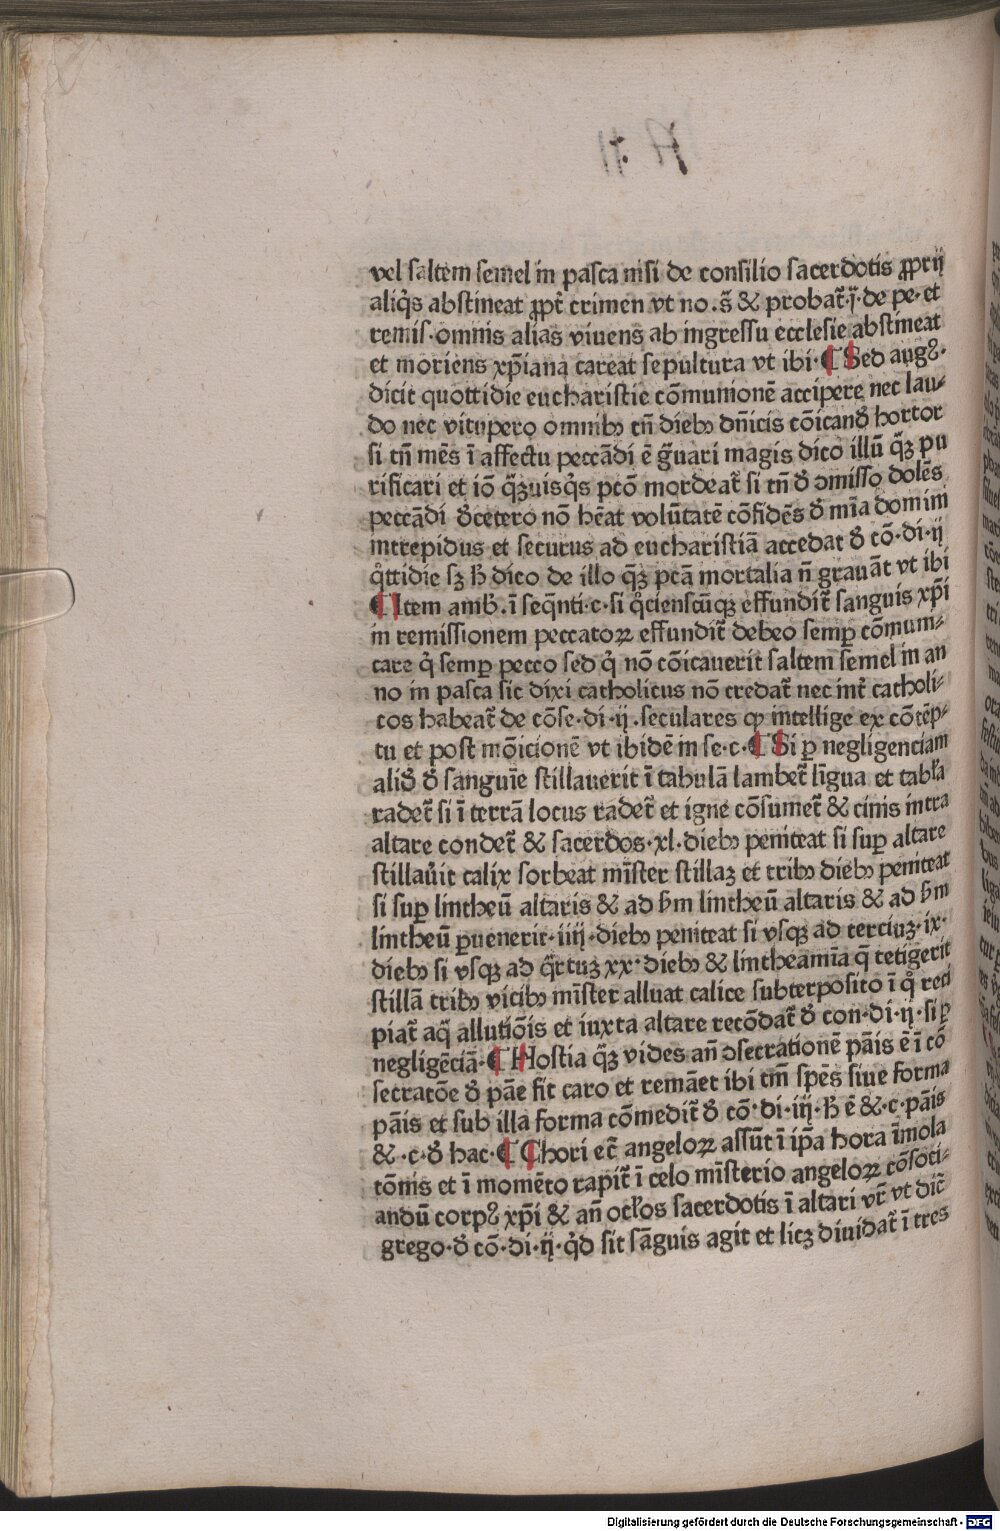 vel saltem semel in pasca nisi de consilio sacerdotis ꝓprij
aliq̃s abstineat ꝓpt̃ crimen vt no.s̃ & probat̃.j̃.de pe.et
remis.omnis alias viuens ab ingressu ecclesie abstineat
et moriens xp̃iana careat sepultura vt ibi.¶ Sed augꝰ.
dicit quottidie eucharistie cõmunionẽ accipere nec lau⸗
do nec vitupero omnibꝫ tñ diebꝫ dñicis cõicandũ hortor
si tñ mẽs ĩ affectu peccãdi ẽ g̃uari magis dico illũ q̃ꝫ pu
rificari et iõ q̃ꝫuisq̃s pctõ mordeat̃ si tñ đ ↄmisso dolẽs
peccãdi đcetero nõ hẽat volũtatẽ cõfidẽs đ mĩa domini
intrepidus et securus ad eucharistiã accedat đ cõ.di.ij
q̊ttidie sꝫ ħ dico de illo q̃ꝫ pctã mortalia ñ grauãt vt ibi
¶ Item amb̃.ĩ seq̃nti.c.si q̊ciensc̃ũqꝫ effundit̃ sanguis xp̃i
in remissionem peccatoꝝ effundit̃ debeo semꝑ cõmuni⸗
care q̊ semꝑ pecco sed q̊ nõ cõicauerit saltem semel in an
no in pasca sic dixi catholicus nõ credat̃ nec int̃ catholi⸗
cos habeat̃ de cõse.di.ij.seculares ꝙ intellige ex cõtẽp⸗
tu et post mõicionẽ vt ibidẽ in se.c.¶ Si ꝑ negligenciam
aliđ đ sanguĩe stillauerit ĩ tabulã lambet̃ lĩgua et tabl̃a
radet̃ si ĩ terrã locus radet̃ et igne cõsumet̃ & cinis intra
altare condet̃ & sacerdos.xl.diebꝫ peniteat si suꝑ altare
stillau̾it calix sorbeat mĩster stillaꝫ et tribꝫ diebꝫ peniteat
si suꝑ lintheũ altaris & ad ẜm lintheũ altaris & ad ẜm
lintheũ ꝑuenerit.iiij.diebꝫ peniteat si vsqꝫ ad terciuꝫ.ix.
diebꝫ si vsqꝫ ad q̃rtuꝫ xx.diebꝫ & lintheamĩa q̃ tetigerit
stillã tribꝫ vicibꝫ mĩster alluat calice subterposito ĩ q̊ reci
piat̃ aq̃ allutiõis et iuxta altare recõdat̃ đ con.di.ij.si ꝑ
negligẽciã.¶ Hostia q̃ꝫ vides añ ↄsecrationẽ pãis ẽ ĩ cõ
secratõe đ pãe fit caro et remãet ibi tm̃ sp̃es siue forma
pãis et sub illa forma cõmedit̃ đ cõ.di.iij.ħ ẽ &.c.pãis
&.c.đ hac.¶ Chori et̃ angeloꝝ assũt ĩ ip̃a hora ĩmola
tõnis et ĩ momẽto rapit̃ ĩ celo mĩsterio angeloꝝ cõsoci⸗
andũ corpꝰ xp̃i & añ ocl̃os sacerdotis ĩ altari vt̃ vt dic̃
grego.đ cõ.di.ij.q̊d sit sãguis agit et licꝫ diuidat̃ ĩ tres
Digitalisierung gefördert durch die Deutsche Forschungsgemeinschaft - DFG